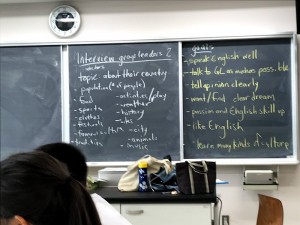 Interview group leaders 2
topic about their country
population (# of people)
food
sports
clothes
festivals
famous
tradition
activities/play
weather
history
city
animals
music
goals
speak English well
talk to GL as much as possible
tell opinion clearly
want/find clear dream
passion and English skill up
like English
learn many kinds of